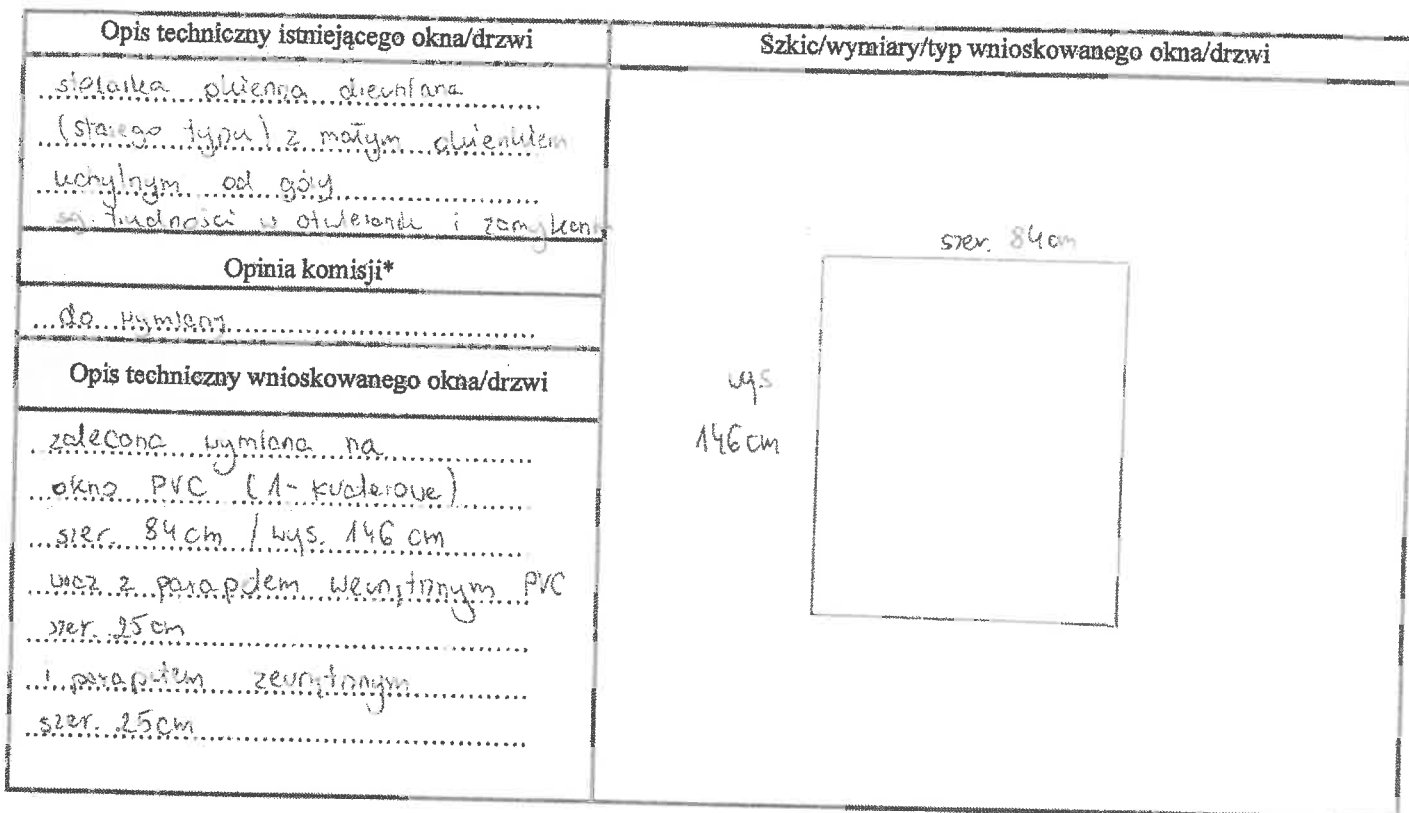 Opis techniczny istniejącego okna/drzwi
stolarka okienna drewniana
(starego typu) z małym okienkiem
uchylnym od góry
są trudności w otwieraniu i zamykaniu
Opinia komisji*
do wymiany
Opis techniczny wnioskowanego okna/drzwi
zalecana wymiana na
okno PVC (1-kwaterowe)
szer. 84cm / wys. 146 cm
wraz z parapetem wewnętrznym PVC
szer. 25cm
i parapetem zewnętrznym
szer. 25cm
Szkic/wymiary/typ wnioskowanego okna/drzwi
szer. 84cm
wys
146cm